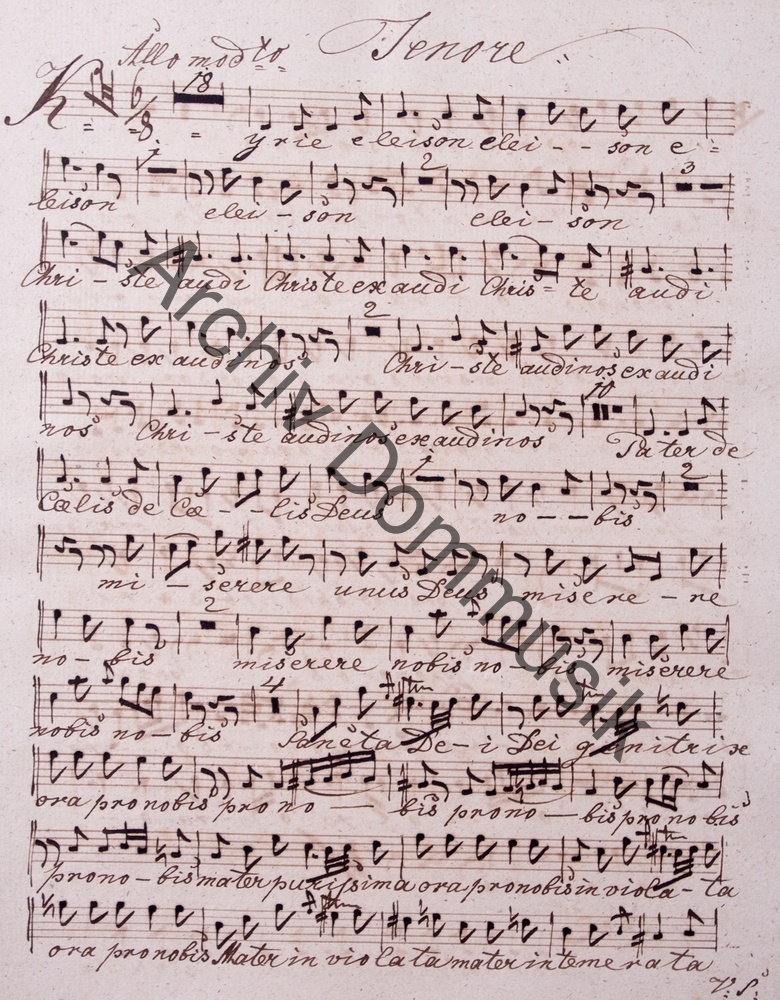 Allo modto Tenore
18
K yrie eleison elei - - son e =
1 2 3
leison elei - son elei - son
Chri - ste audi Christe exaudi Chris = te audi
2
Christe exaudinos Chri - ste audinos exaudi
10
nos Chri - ste audinos exaudinos Pater de
1 2
Cœlis de Cœ - - lis Deus no - - bis
mi - serere unus Deus misere - re
2
no - bis miserere nobis no - bis miserere
4
nobis no - bis Sancta De - i Dei genitrix
ora pro nobis pro no - bis pro no - bis pro no bis
pro no - bis mater purissima ora pro nobis in viola - ta
ora pro nobis Mater in vio la ta mater in teme ra ta
V: S:
Archiv Dommusik